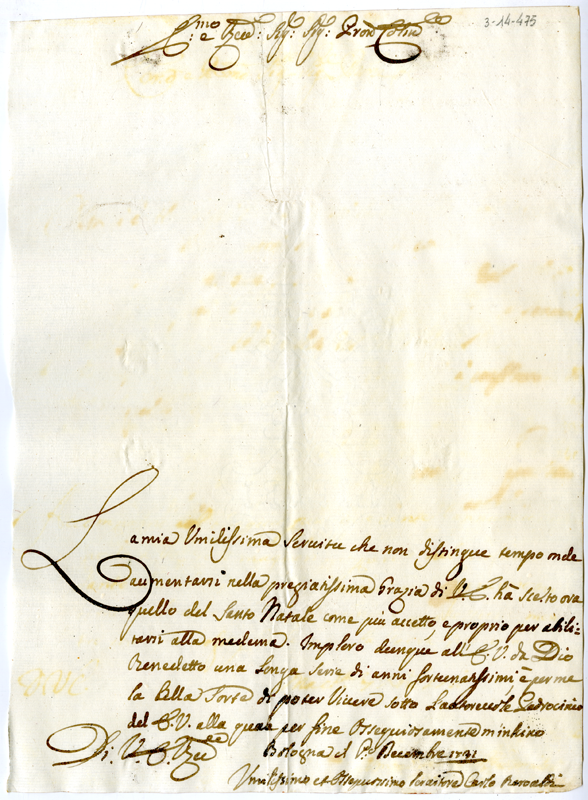 3-14-475
E:mo e Ecc: Sig:r Sig:r Pron Col:mo
La mia Umilissima Servitu che non distingue tempo onde
aumentarsi nella pregiatissima Grazia di V. E. hà scelto ora
quello del Santo Natale come più accetto, e proprio per abili:
tarsi alla medema. Imploro dunque all'E. V. da Dio
Benedetto una longa Serie di anni fortunatissimi e per me
la Bella Sorte di poter Vivere sotto L'autorevole Padrocinio
del E. V. alla quale per fine Ossequiosamente m'inkino
Di V. E. Ecc Bologna il P:o Decembre 1731
Umilissimo et Ossequiosissimo Servitore Carlo